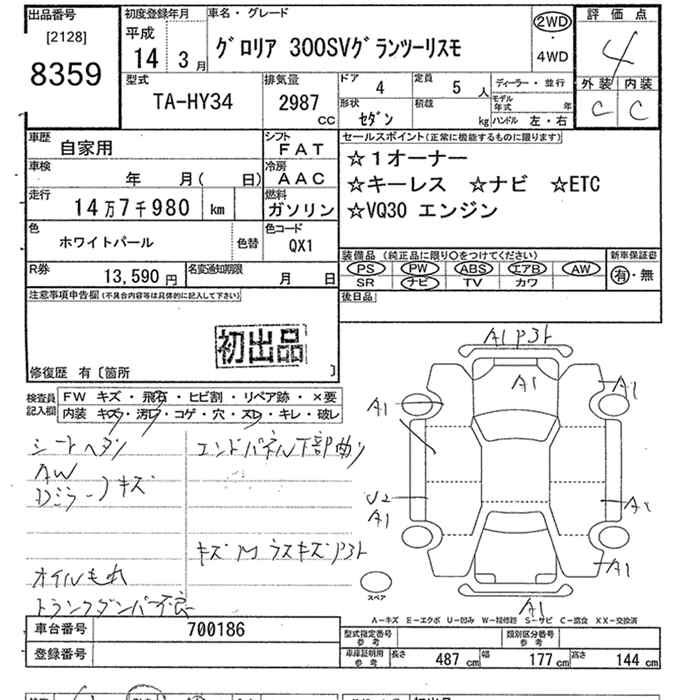 出品番号
[2128]
8359
初度登録年月
平成
14年 3月
車名・グレード
グロリア 300SVグランツーリスモ
2WD
・
4WD
評価点
4
外装 内装
C C
型式
TA-HY34
排気量
2987
cc
ドア 4
定員 5人
形状
セダン
積載
kg
ディーラー・並行
モデル年式 年
ハンドル 左・右
車歴
自家用
シフト
FAT
車検
年 月( 日)
冷房
AAC
走行
14万7千980 km
燃料
ガソリン
色
ホワイトパール
色替
色コード
QX1
セールスポイント(正常に機能するものに限ります)
☆1オーナー
☆キーレス ☆ナビ ☆ETC
☆VQ30 エンジン
R券
13,590円
名変通知期限
月 日
装備品 (純正品に限り〇をつけてください)
PS PW ABS エアB AW
SR ナビ TV カワ
新車保証書
有・無
後日品
注意事項申告欄(不具合内容等は具体的に記入して下さい)
初出品
修復歴 有〔箇所 〕
検査員記入欄
FW キズ・飛石・ヒビ割・リペア跡・×要
内装 キズ・汚レ・コゲ・穴・スレ・キレ・破レ
シートヘタリ
AW
Dミラー 〉キズ
オイルもれ
トランクダンパー不良
エンドパネル下部曲り
キズM ウスキズP3ト
A1 P3ト
A1
A1
A1
U2
A1
A1
A1
スペア
A-キズ E-エクボ U-凹み W-補修跡 S-サビ C-腐食 XX-交換済
車台番号
700186
登録番号
型式指定番号
参考
類別区分番号
参考
車庫証明用
参考
長さ 487cm
幅 177cm
高さ 144cm